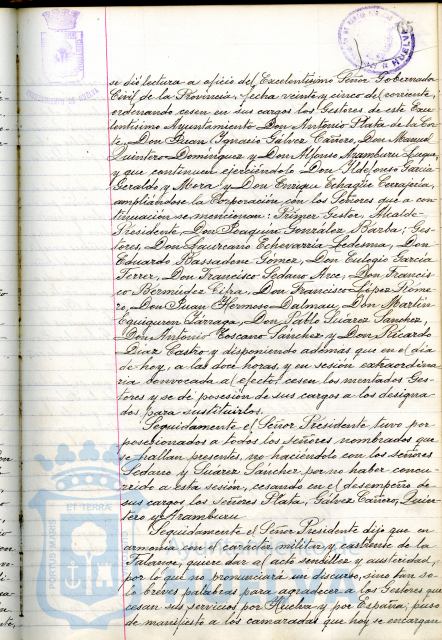 se dió lectura a oficio del Excelentísimo Señor Gobernador
Civil de la Provincia, fecha veinte y cinco del corriente,
ordenando cesen en sus cargos los Gestores de este Exce-
lentísimo Ayuntamiento Don Antonio Plata de la Cor-
te, Don Juan Ignacio Gálvez Cañero, Don Manuel
Quintero Domínguez y Don Alfonso Aramburu
y que continuen ejerciéndolo Don Ildefonso García
Geraldo, y Mora y Don Enrique Echagüe
ampliándose la Corporación, con los Señores que a con-
tinuación se mencionan: Primer Gestor, Alcalde-
Presidente, Don Joaquín González Barba; Ges-
tores, Don Laureano Echevarría Ledesma, Don
Eduardo Rassadene Gómez, Don Eulogio García
Ferrer, Don Francisco Sedano Arce, Don Francis-
co Bermúdez Don Francisco López Rome-
ro, Don Juan Hermoso Dalmau, Don Martín
Eguiguren Don Pablo Suárez Sánchez,
Don Antonio Toscano Sánchez y Don Ricardo
Díaz Castro y disponiendo además que en el día
de hoy, a las doce horas, y en sesión extraordina-
ria convocada al efecto, cesen los mentados Ges-
tores y se dé posesión de sus cargos a los designa-
dos para sustituirlos.
Seguidamente el Señor Presidente tuvo por
posesionados a todos los señores nombrados que
se hallan presentes, no haciéndolo con los señores
Sedano y Suárez Sánchez por no haber concu-
rrido a esta sesión, cesando en el desempeño de
sus cargos los señores Plata, Gálvez Cañero, Quin-
tero y Aramburu.
Seguidamente el Señor Presidente dijo que en
armonía con el carácter militar y castrense de la
Falange, quiere dar al acto sencillez y austeridad,
por lo que no pronunciará un discurso, sino tan so-
lo breves palabras para agradecer a los Gestores que
cesan sus servicios por Huelva y por España; puso
de manifiesto a los camaradas que hoy se encargan
PORTUS MARIS
ET TERRÆ
Ayuntamiento de